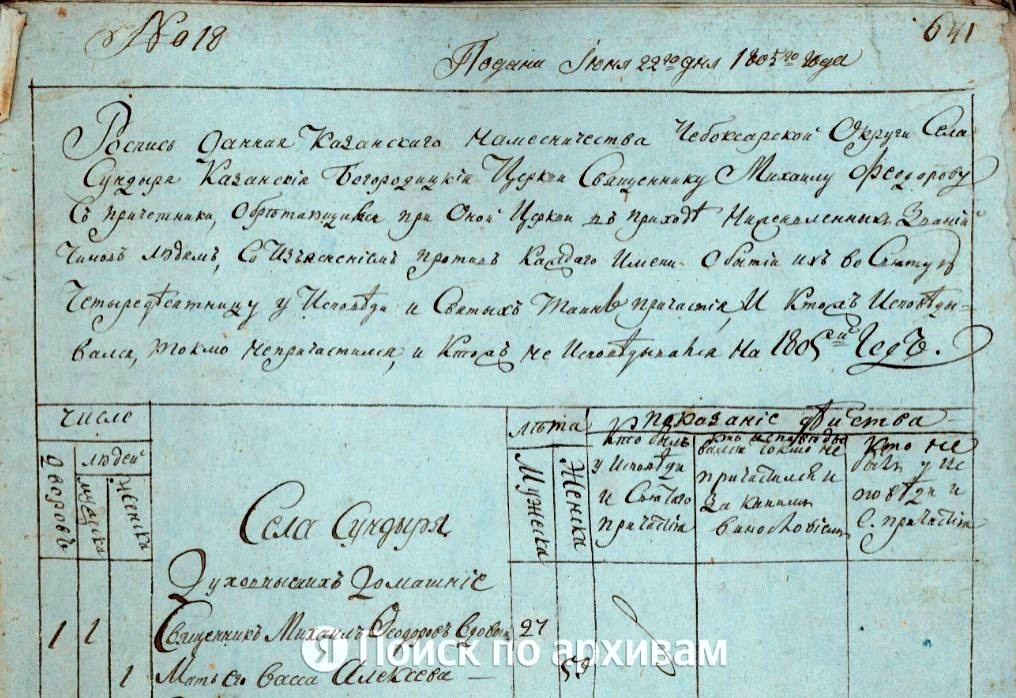 № 18
641
Подана Июня 22го дня 1805го года
Роспись данная Казанскаго намесничества Чебоксарской Округи Села
Сундыря Казанскiя Богородицкiя Церкви Священнику Михаилу Феодорову
Съ причетники, Обретающимся при Оной Церкви въ приходѣ Нижеявленныхъ Званiй
Чиновъ людемъ, Со Изъясненiемъ противъ Каждаго Имени О бытiи ихъ во Святую
Четыредесятницу у Исповѣди и Святыхъ Таинъ причастiя, И Ктожъ Исповѣды-
вался, токмо непричастился, и Ктожъ не Исповѣдывался На 1805ый Годъ.
Число
лѣта
показанiе дѣйства
Дворовъ
людей
мужска
женска
Мужска
Женска
Кто былъ
у Исповѣди
И Святаго
причастiя
Кто исповѣды
вался токмо не
причастился и
За какимъ
винословiемъ
Кто не
былъ у ис
повѣди и
С. причастiя
Села Сундыря
Духовныхъ Домашнiе
1 1 Священникъ Михаилъ Феодоровъ Вдовый 27
1 Мать его Васса Алексѣева 59
Я Поиск по архивам